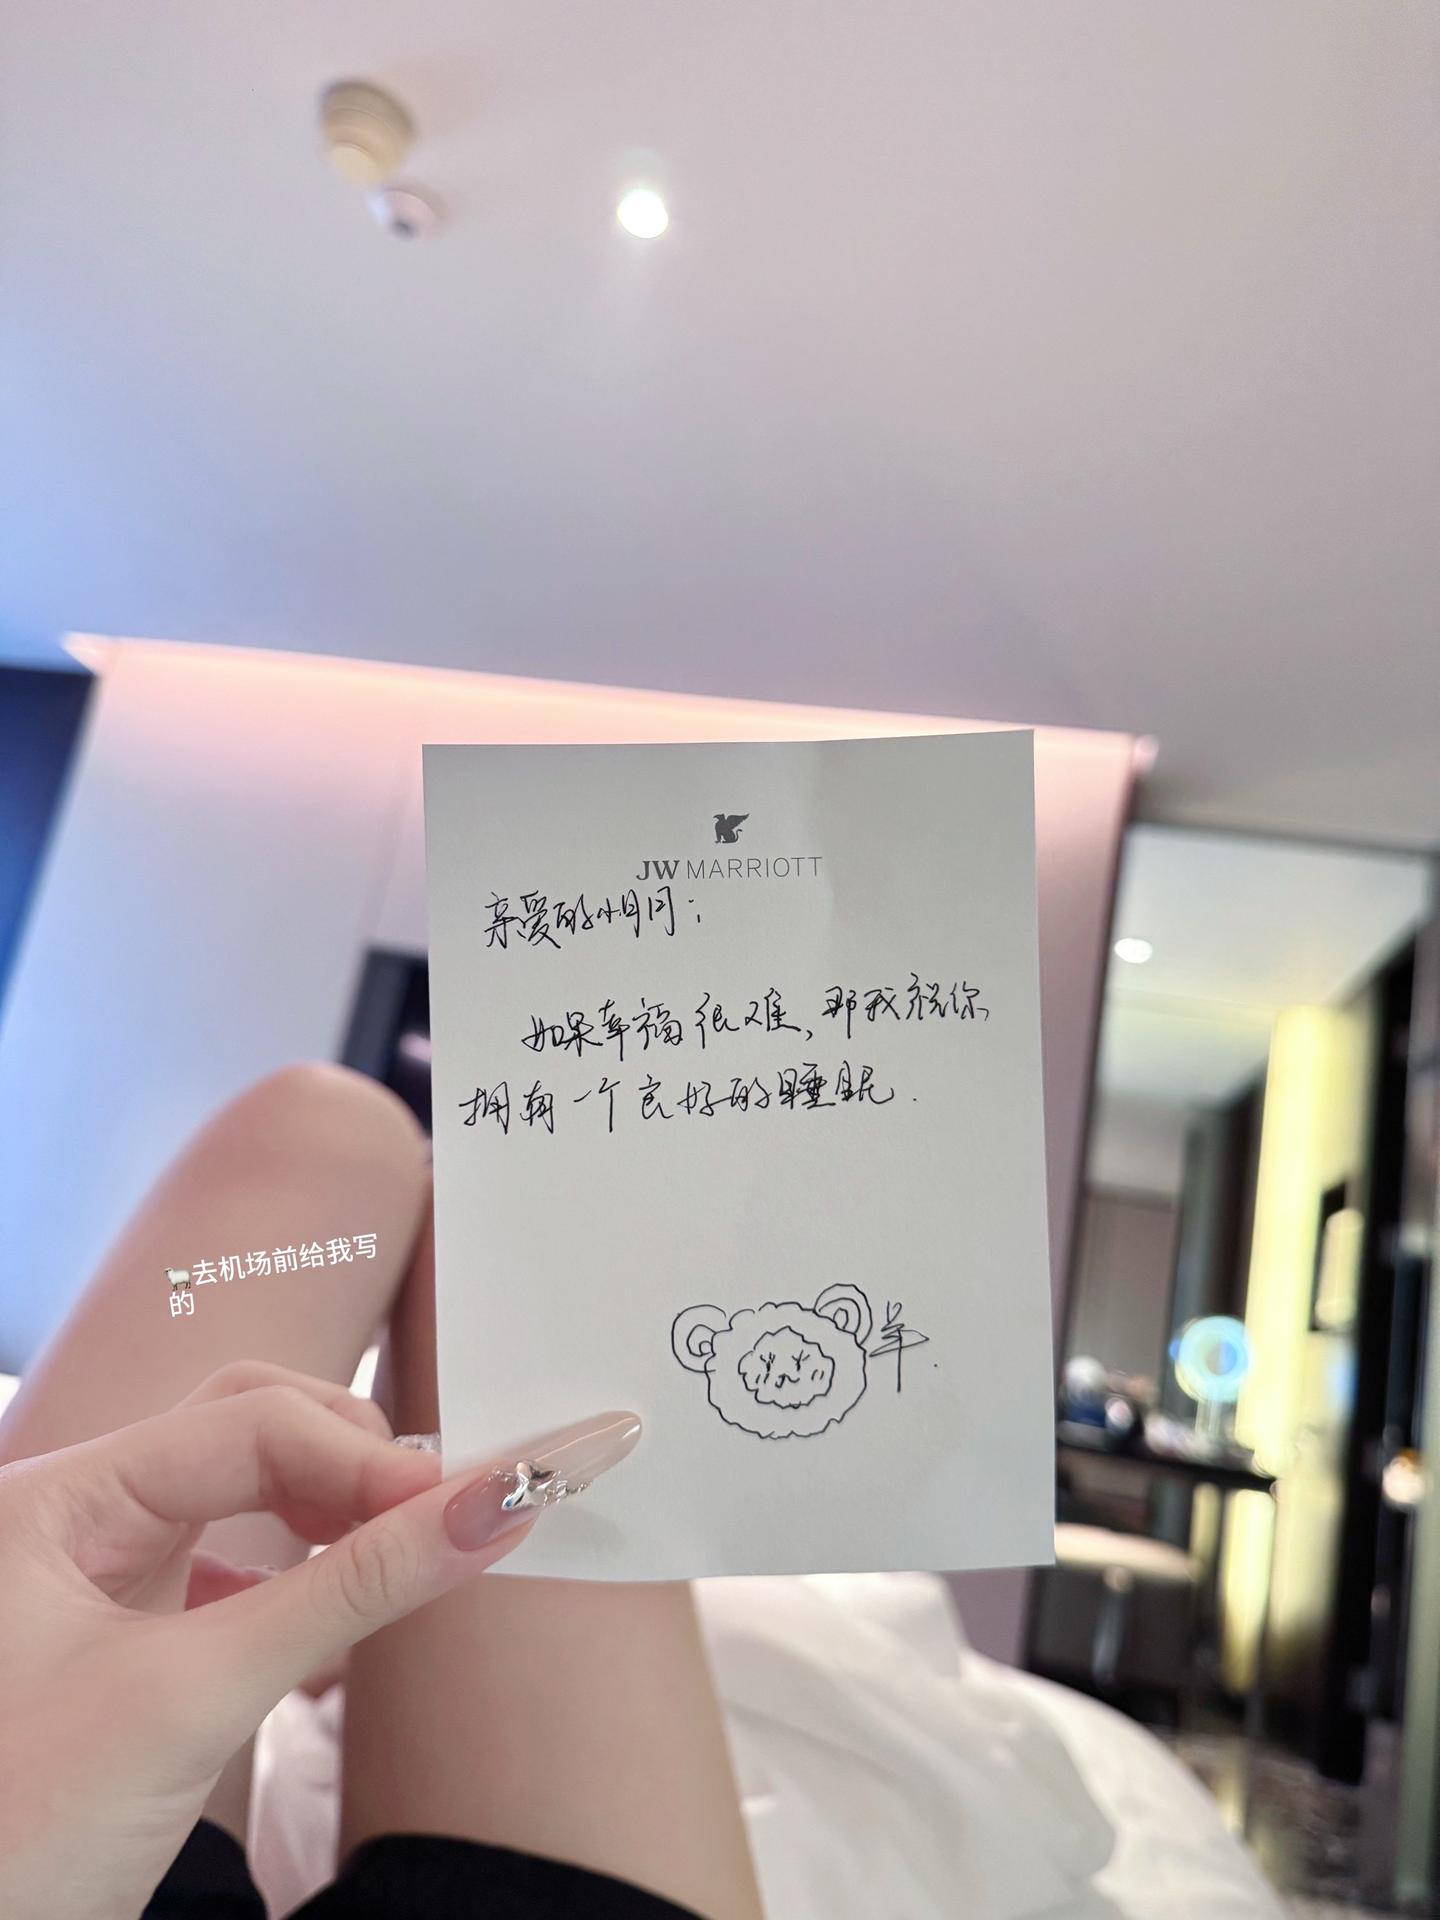 JW MARRIOTT
亲爱的小月月：
如果幸福很难，那我祝你
拥有一个良好的睡眠.
羊.
🐑去机场前给我写
的